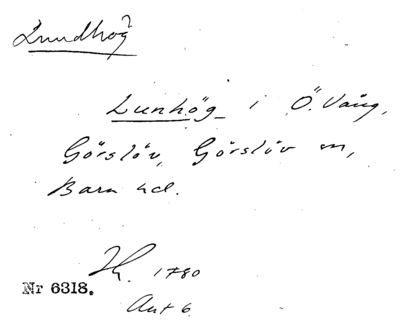 Lundhög
Lunhög i Ö. Vång,
Görslöv, Görslöv sn,
Bara hd.
1780
Nr 6318.
Akt 6